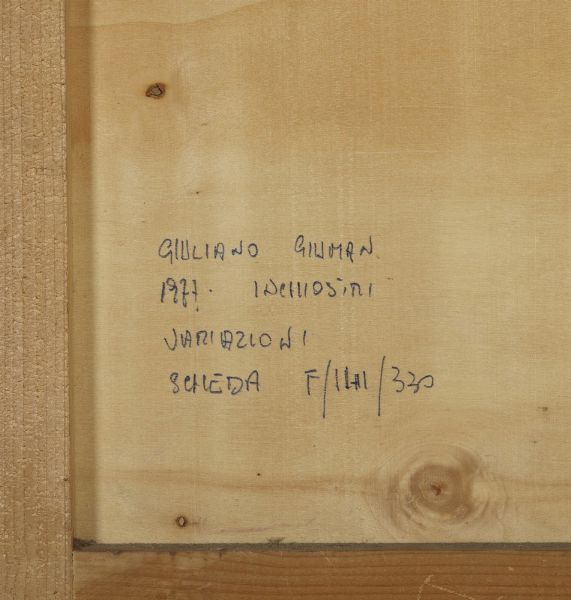 GIULIANO GIUMAN
1977. INCHIOSTRI
VARIAZIONI
SCHEDA